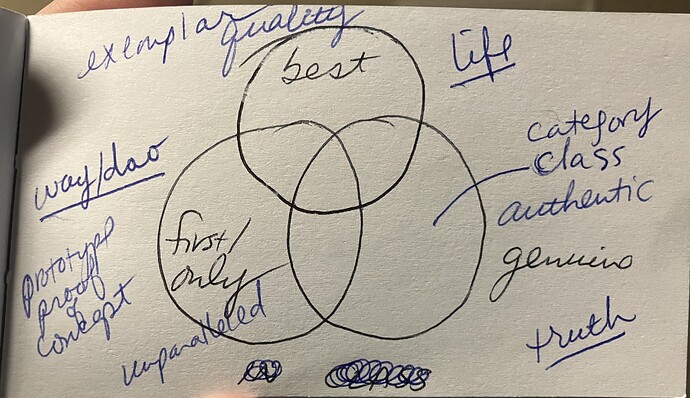 exemplar quality
best
life
way/dao
category
class
authentic
first/
only
genuine
prototype
proof
of
concept
unparalleled
truth